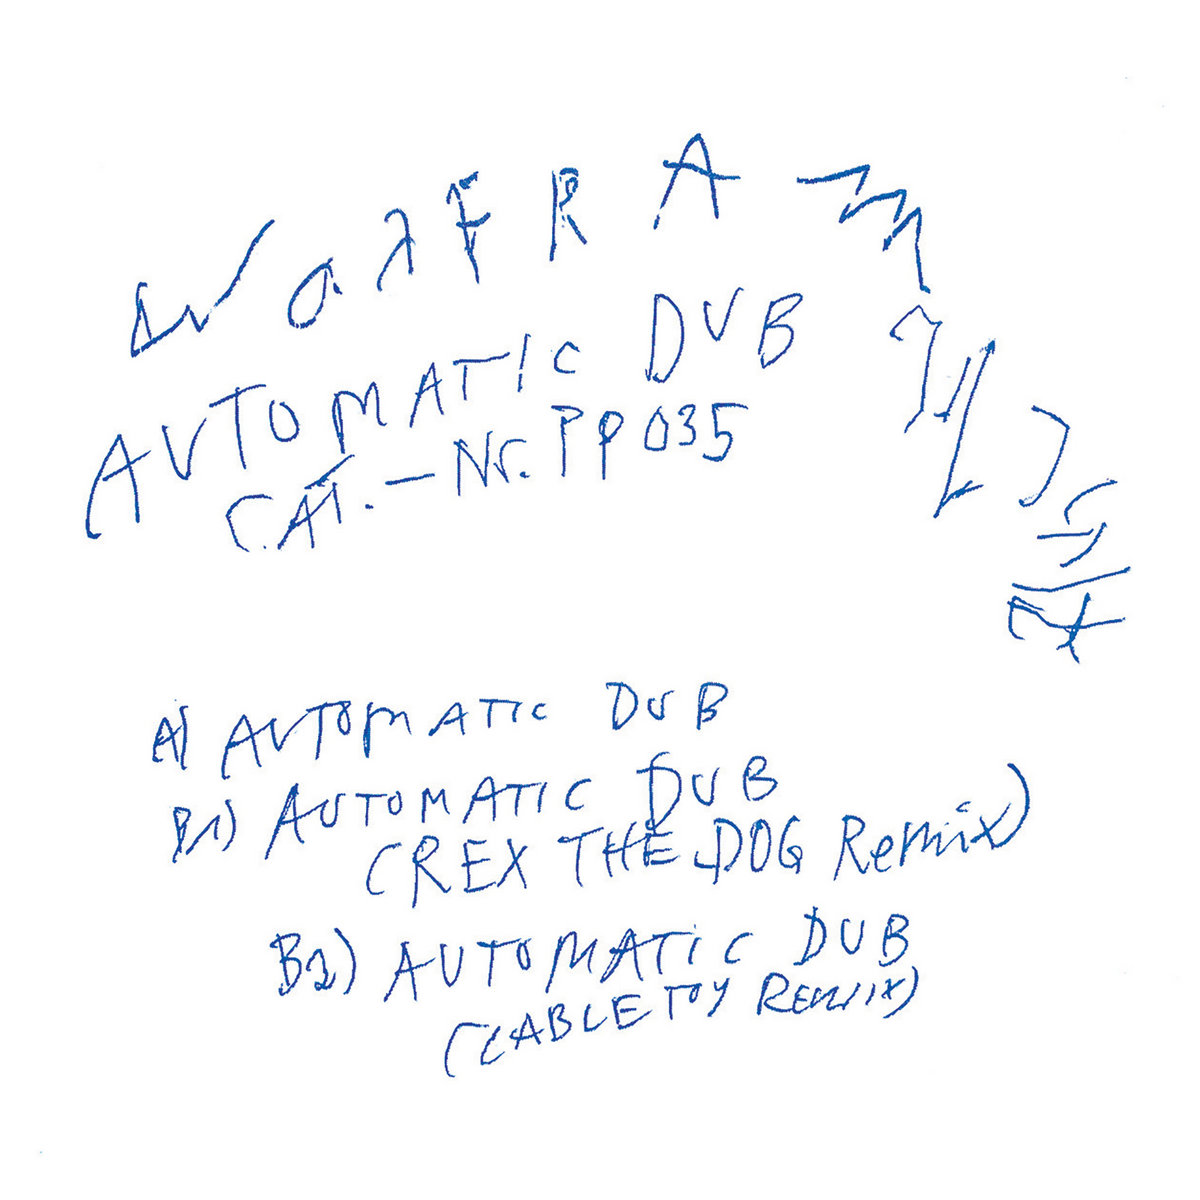 WolFRAm
AUTOMATIC DUB
CAT.-Nr. PP035
A) AUTOmATIC DUB
B1) AUTOMATIC DUB
(REX THE DOG Remix)
B2) AUTOMATiC DUB
(CABLE TOY REmiX)